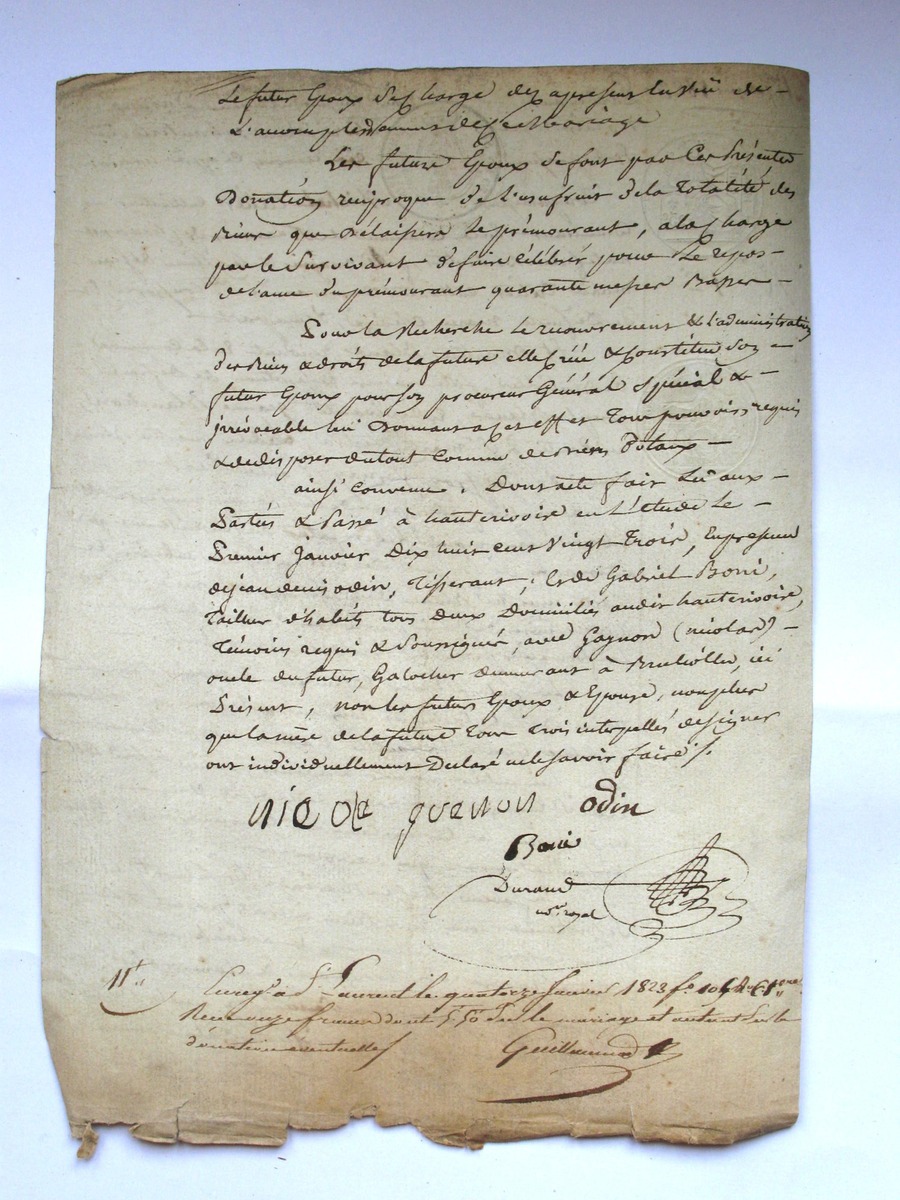 Le futur Epoux se Charge dez apresent en Vüe de
L'accomplissement de Ce Mariage
Les futurs Epoux se font par Ces présentes
Donation reciproque de L'usufruit de la Totalité des
Biens que Délaissera Le prémourant, a la Charge
par le Survivant de faire Célébrer pour Le repos
de l'ame du prémourant quarante messes Basses
Pour la Recherche Le recouvrement & L'administration
Des Biens & droits de la future elle Crée & Constitue Son
futur Epoux pour Son procureur Général Spécial &
jrrévocable lui Donnant a Cet effet Tous pouvoirs requis
& de disposer du tout Comme de Biens Dotaux
ainsi Convenu. Dont acte fait Lû aux
Parties & Passé à hauterivoire en L'étude Le
Premier janvier Dix huit cent Vingt Trois, En presence
de jean denis odin, Tisserant, Et de Gabriel Borri,
Tailleur d'habits tous deux Domiciliés audit hauterivoire,
Témoins requis & Soussignés, avec Gagnon (nicolas)
oncle du futur, Galocher demeurant à Brullioles, ici
Présent, non les futurs Epoux & Epouse, non plus
que la mère de la future Tous Trois interpellés de signer
ont individuellement Déclaré ne le Savoir faire /.
nicola guenon odin
Borri
Durand
not. royal
11f
Enreg. à St Laurent le quatorze Janvier 1823 fo 104
Reçu onze francs dont 5 50 pour le mariage et autant pour la
donation eventuelle
Guillermond